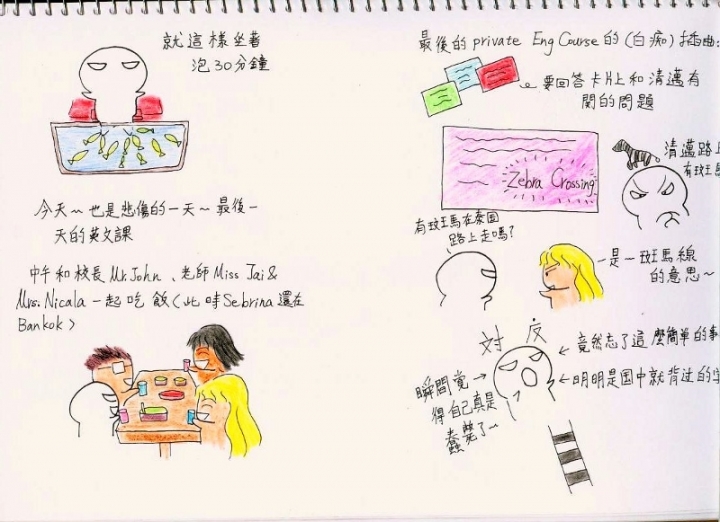 就這樣坐著
泡30分鐘
今天~也是悲傷的一天~最後一
天的英文課
中午和校長Mr.John、老師Miss Jai &
Mrs. Nicala一起吃飯(此時Sebrina還在
Bankok)
最後的private Eng Course的(白痴)插曲:
要回答卡片上和清邁有
關的問題
Zebra Crossing
清邁路上
有斑馬
有斑馬在泰國
路上走嗎?
是~斑馬線
的意思~
対反
竟然忘了這麼簡單的事
明明是國中就背过的字
瞬間覺
得自己真是
蠢斃了~